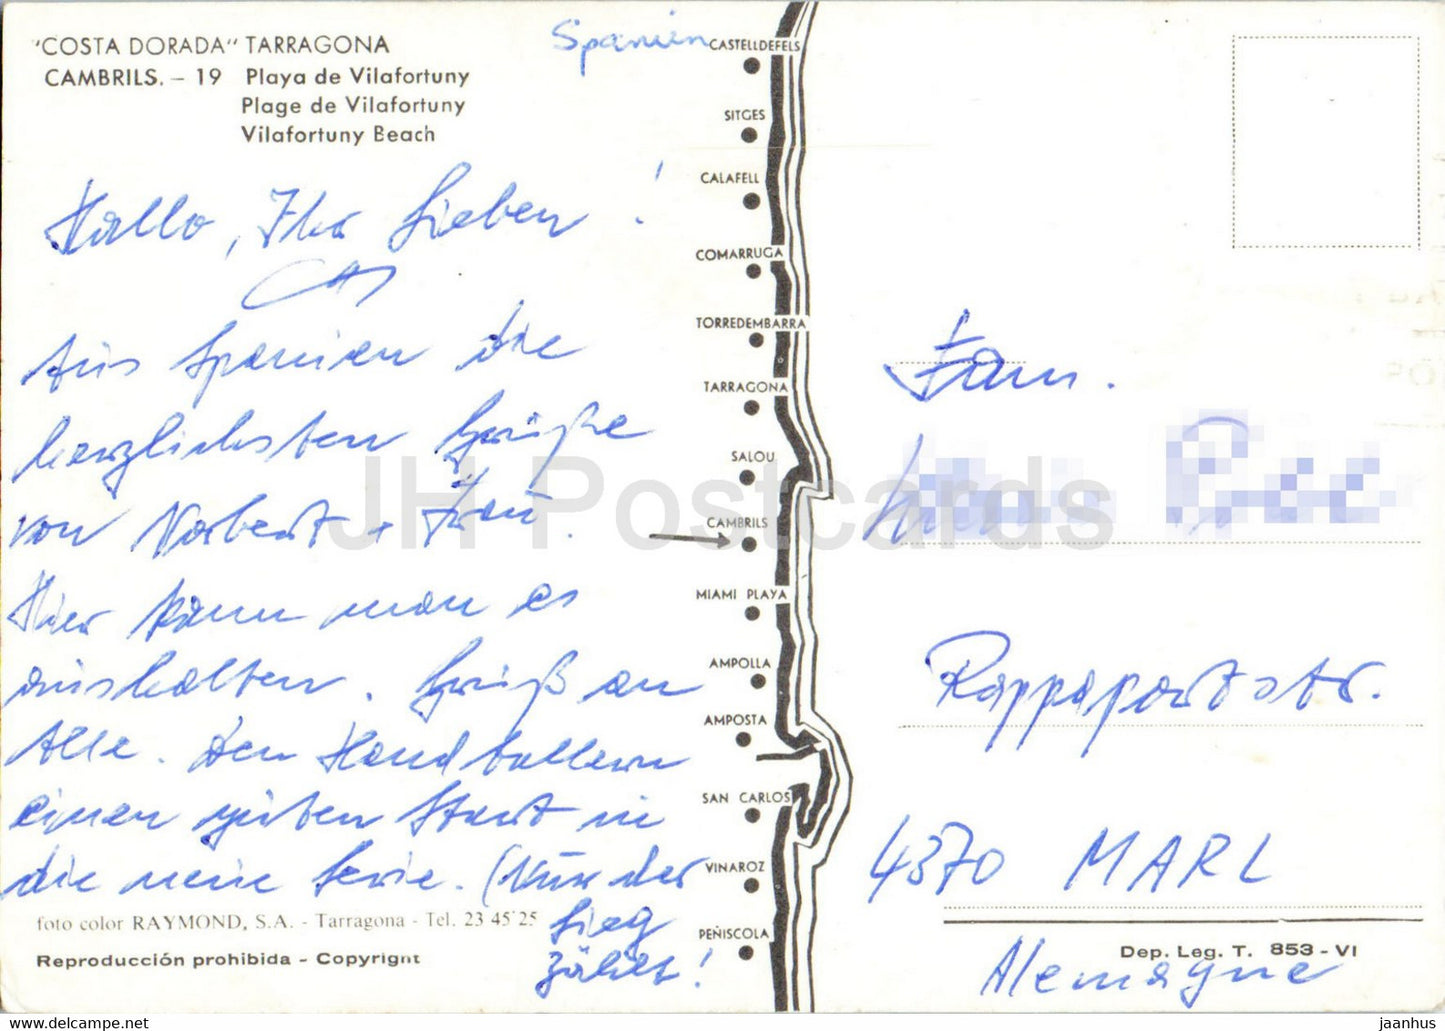 "COSTA DORADA" TARRAGONA
CAMBRILS. – 19 Playa de Vilafortuny
Plage de Vilafortuny
Vilafortuny Beach
Spanien
Hallo, Ihr Lieben!
Aus Spanien die
herzlichsten Grüße
von Norbert + Frau.
Hier kann man es
aushalten. Gruß an
Alle. Den Handballern
einen guten Start in
die neue Serie. (Nur der
Sieg
zählt!
foto color RAYMOND, S.A. - Tarragona - Tel. 23 45'25
Reproducción prohibida - Copyright
CASTELLDEFELS
SITGES
CALAFELL
COMARRUGA
TORREDEMBARRA
TARRAGONA
SALOU
CAMBRILS
MIAMI PLAYA
AMPOLLA
AMPOSTA
SAN CARLOS
VINAROZ
PEÑISCOLA
Fam.
Rappaportstr.
4370 MARL
Dep. Leg. T. 853 - VI
Alemagne
JH Postcards
https://www.delcampe.net
jaanhus